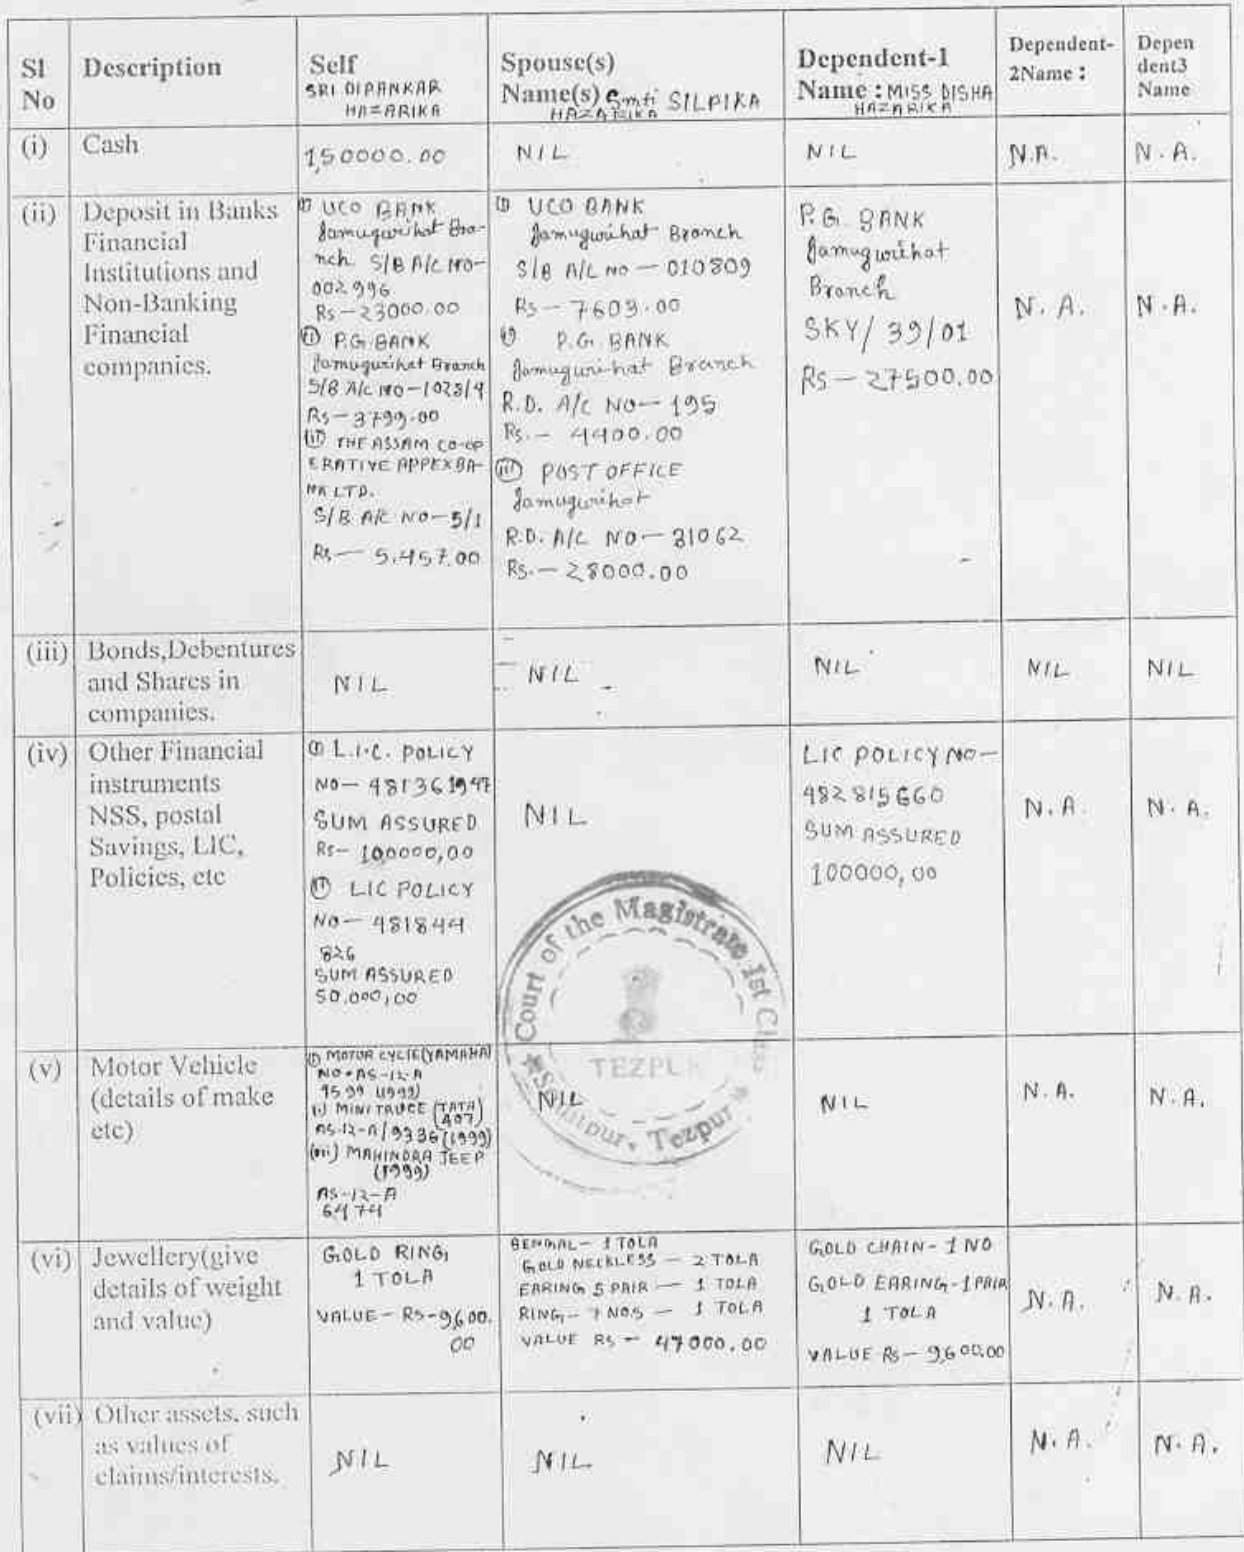 Sl No
Description
Self
SRI DIPANKAR
HAZARIKA
Spouse(s)
Name(s) Smti SILPIKA
HAZARIKA
Dependent-1
Name : MISS DISHA
HAZARIKA
Dependent-
2Name :
Depen
dent3
Name
(i)
Cash
1,50000.00
NIL
NIL
N.A.
N.A.
(ii)
Deposit in Banks
Financial
Institutions and
Non-Banking
Financial
companies.
(i) UCO BANK
Jamugurihat Bra-
nch S/B A/C NO-
002996
Rs-23000.00
(ii) P.G. BANK
Jamugurihat Branch
S/B A/C NO-1028/4
Rs-3799.00
(iii) THE ASSAM CO-OP
ERATIVE APPEX BA-
NK LTD.
S/B A/C NO-5/1
Rs- 5,457.00
(i) UCO BANK
Jamugurihat Branch
S/B A/C NO-010809
Rs-7603.00
P.G. BANK
Jamugurihat Branch
R.D. A/C NO-195
Rs.- 4400.00
(iii) POST OFFICE
Jamugurihat
R.D. A/C NO-31062
Rs.-28000.00
P.G. BANK
Jamugurihat
Branch
SKY/39/01
Rs-27500.00
N.A.
N.A.
(iii)
Bonds,Debentures
and Shares in
companies.
NIL
NIL
NIL
NIL
NIL
(iv)
Other Financial
instruments
NSS, postal
Savings, LIC,
Policies, etc
(i) L.I.C. POLICY
NO-481361947
SUM ASSURED
Rs- 100000,00
(ii) LIC POLICY
NO-481844
826
SUM ASSURED
50,000,00
NIL
LIC POLICY NO-
482815660
SUM ASSURED
100000,00
N.A.
N.A.
Court of the Magistrate 1st Class
TEZPUR
Sonitpur, Tezpur
(v)
Motor Vehicle
(details of make
etc)
(i) MOTOR CYCLE(YAMAHA)
NO-AS-12-A
9599 (1999)
(ii) MINI TRUCE (TATA
407)
AS-12-A/9336(1999)
(iii) MAHINDRA JEEP
(1999)
AS-12-A
6474
NIL
NIL
N.A.
N.A.
(vi)
Jewellery(give
details of weight
and value)
GOLD RING,
1 TOLA
VALUE-RS-9,600.
00
1 TOLA
GOLD NECKLESS - 2 TOLA
EARING 5 PAIR - 1 TOLA
RING - 7 NOS - 1 TOLA
VALUE RS - 47000.00
GOLD CHAIN-1 NO
GOLD EARING-1 PAIR
1 TOLA
VALUE RS-9,600.00
N.A.
N.A.
(vii)
Other assets, such
as values of
claims/interests.
NIL
NIL
NIL
N.A.
N.A.